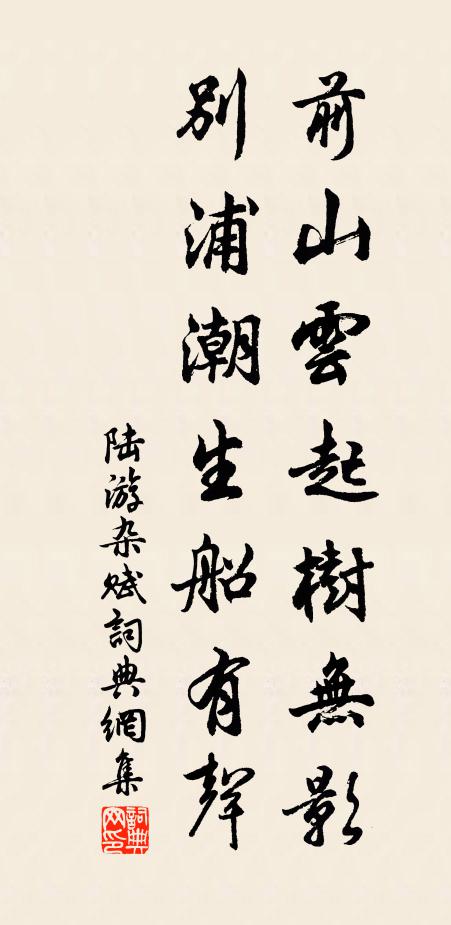 前山雲起樹無影
別浦潮生船有聲
陆游杂赋詞典網集
詞典网印